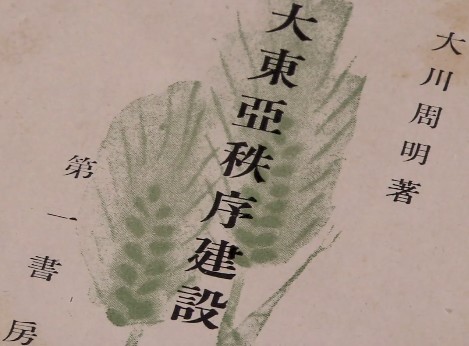 大川周明著
大東亞秩序建設
第一書房